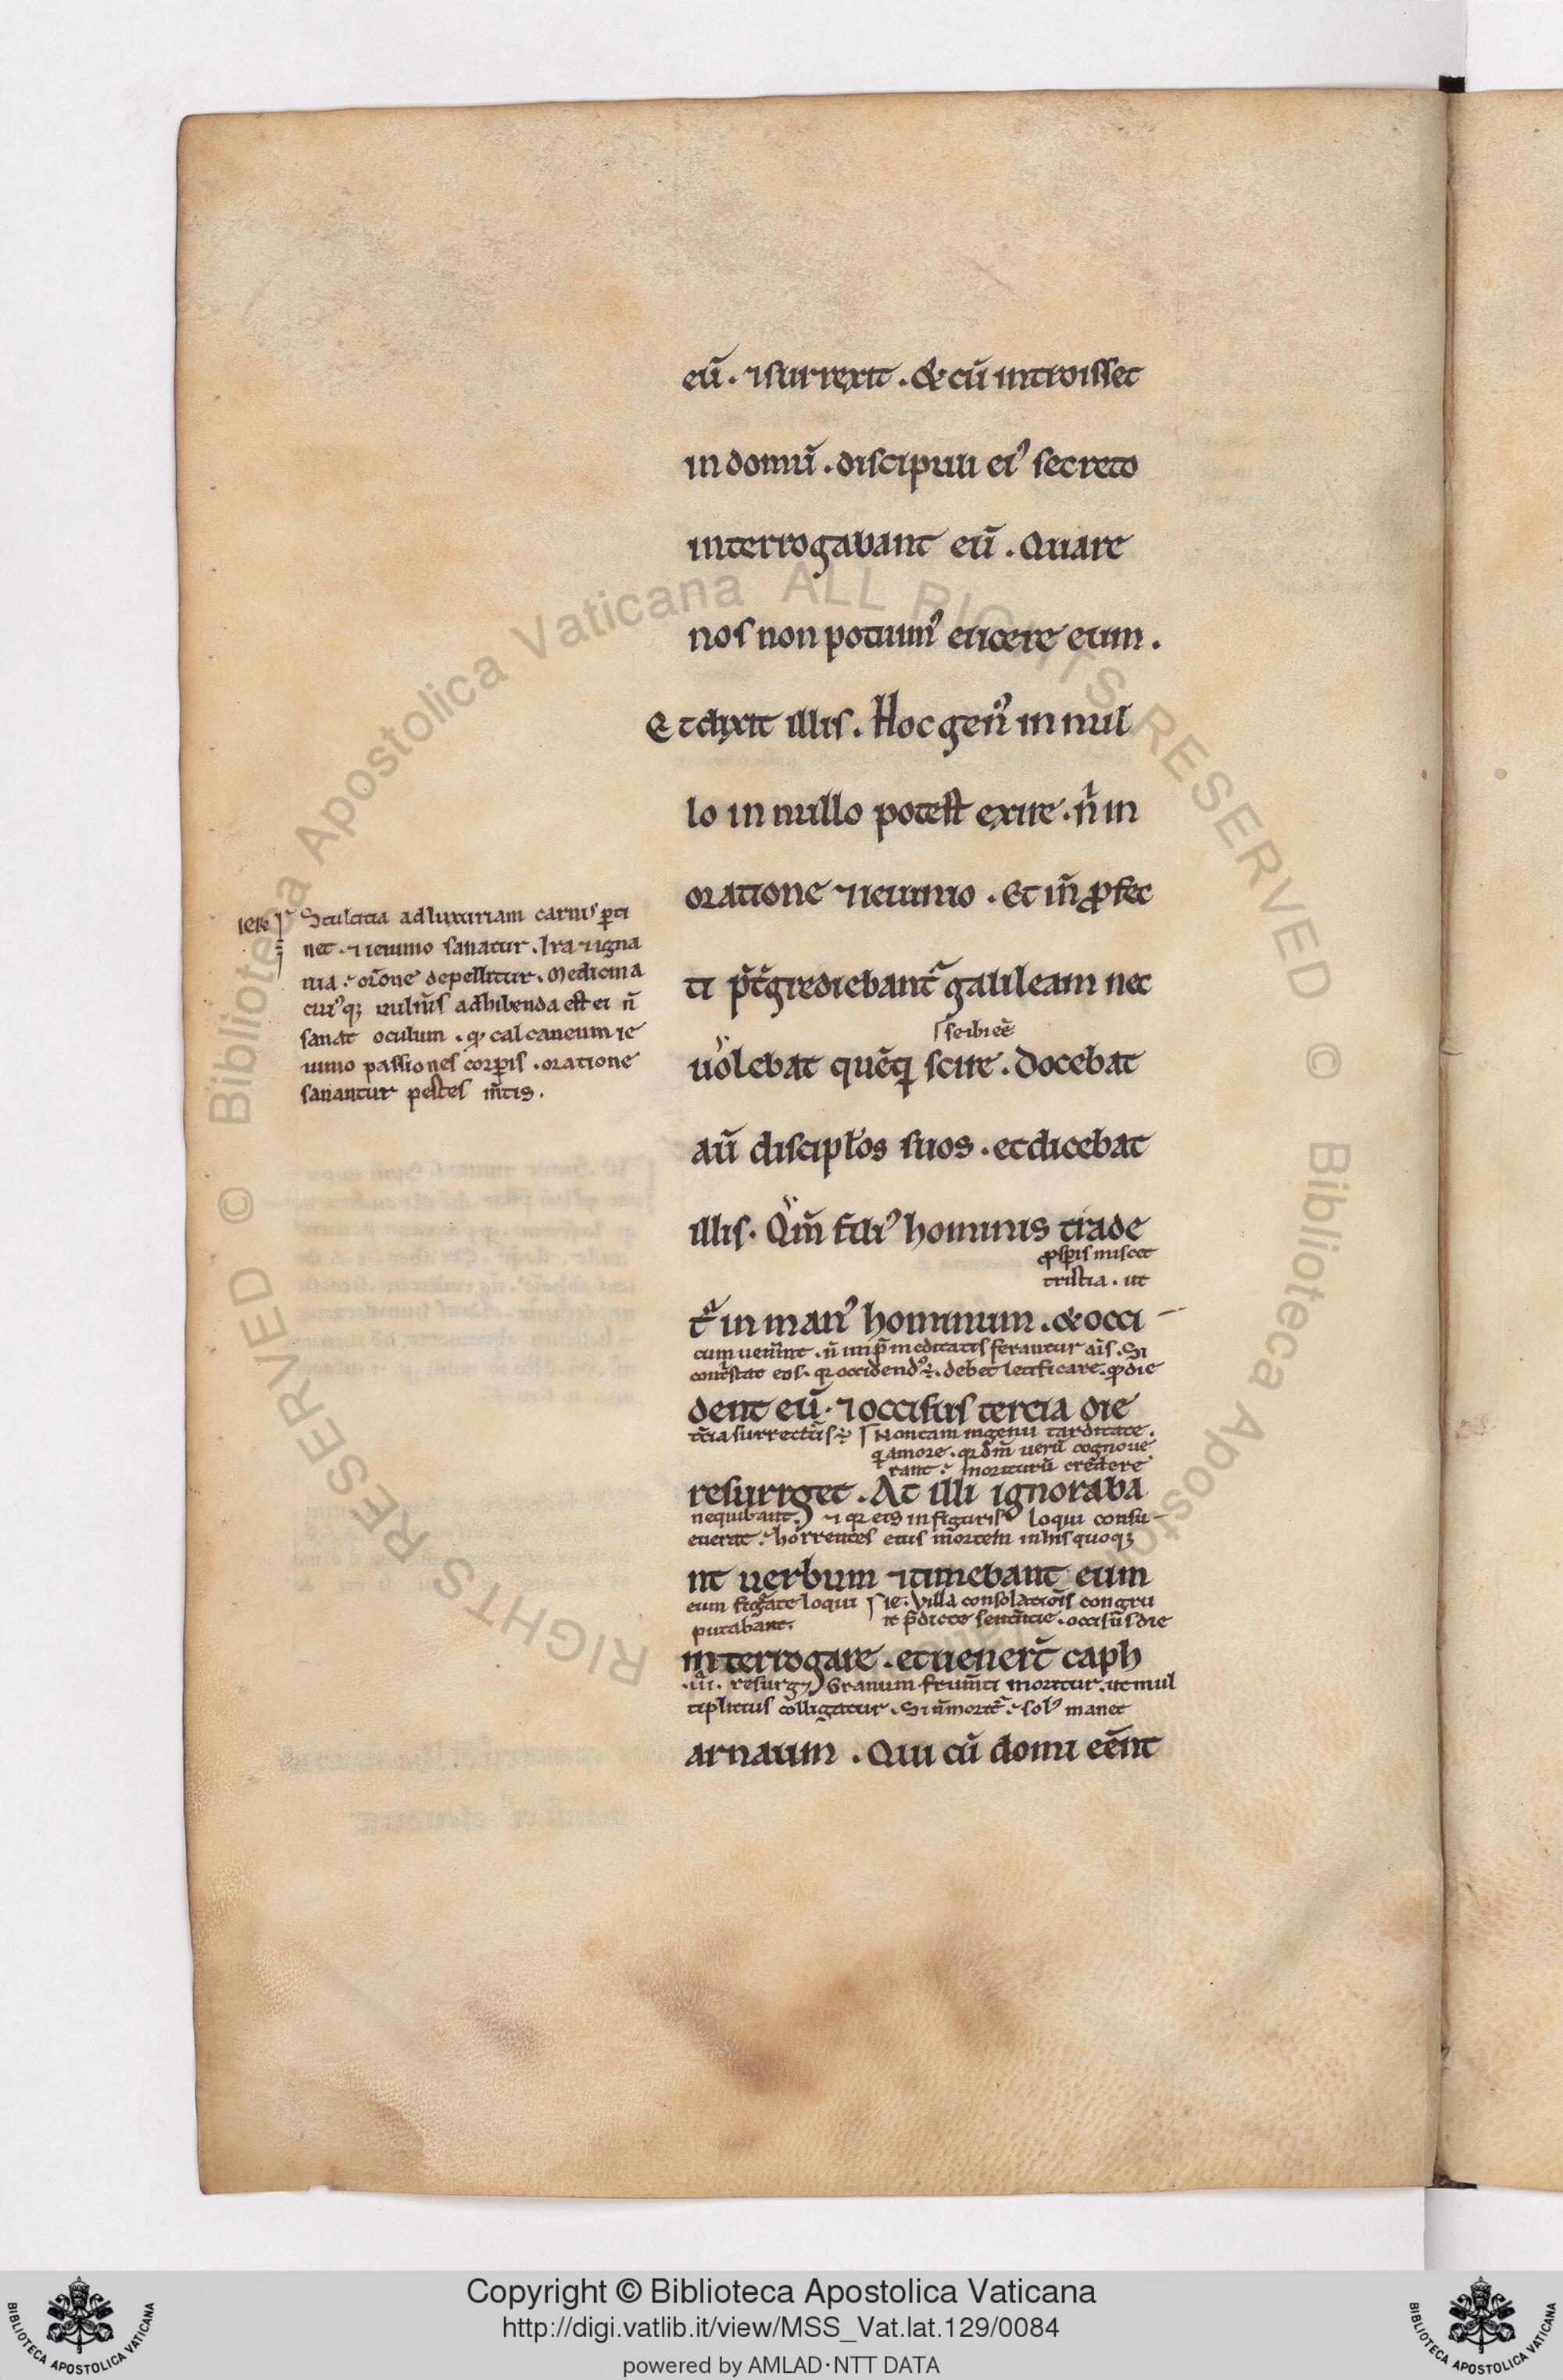 eū. ⁊ surrexit. & cū introisset
in domū. discipuli ei᾽ secreto
interrogabant eū. Quare
nos non potuim᾽ eiicere eum.
Et dixit illis. Hoc gen᾽ in nul
lo in nullo potest exire. n̄ in
oratione ⁊ ieiunio. Et in̄ ꝓfec
ti p̄tgrediebant᾽ galileam nec
sc ibi eē
uolebat quēq scire. docebat
aū discipłos suos. et dicebat
illis. Qm̄ fili᾽ hominis trade
ꝓspis miscet
tristia. ut
t᾽ in man᾽ hominum. & occi
cum uenīnt. n̄ īmp̄meditatis ferantur aīs. Si
cont᾽stat eos. qꝛ occidend᾽ ē. debet letificare. ꝙ die
dent eū. ⁊ occisus tercia die
t̄cia surrectur᾽ ē Non tam ingenii tarditate.
q amore. qꝛ dm̄ uerū cognoue
rant. moriturū credere
resurrget. At illi ignoraba
nequibant. ⁊ qꝛ eis in figuris loqui consu
euerat. horrentes eius mortem in his quoqꝫ
nt uerbum ⁊ timebant eum
eum figᵃate loqui Ie. Villa consolationis congru
putabant. it p̄dicte sentn̄tie. occisū s die
interrogare. et uenert̄ caph
.iii. resurgꝫ Granum frum̄ti moritur. ut mul
tiplicius colligatur. Si n̄ morit᾽. sol᾽ manet
arnaum. Qui cū domi eēnt
Ieꝛo
Stultitia ad luxuriam carnis ꝑti
net. ⁊ ieiunio sanatur. Ira ⁊ igna
uia. orōne depellitur. Medicina
cui᾽qꝫ uuln̄is adhibenda est ei n̄
sanat oculum. qᵈ calcaneum ie
iunio passiones corꝑis. oratione
sanantur pestes m̄tis.
Copyright © Biblioteca Apostolica Vaticana
http://digi.vatlib.it/view/MSS_Vat.lat.129/0084
powered by AMLAD·NTT DATA
BIBLIOTECA APOSTOLICA VATICANA
BIBLIOTECA APOSTOLICA VATICANA
© Biblioteca Apostolica Vaticana ALL RIGHTS RESERVED © Biblioteca Apostolica Vaticana ALL RIGHTS RESERVED